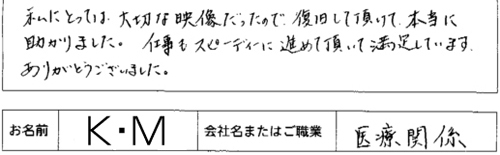 私にとっては、大切な映像だったので、復旧して頂けて、本当に
助かりました。仕事もスピーディーに進めて頂いて満足しています。
ありがとうございました。
お名前 K・M 会社名またはご職業 医療関係